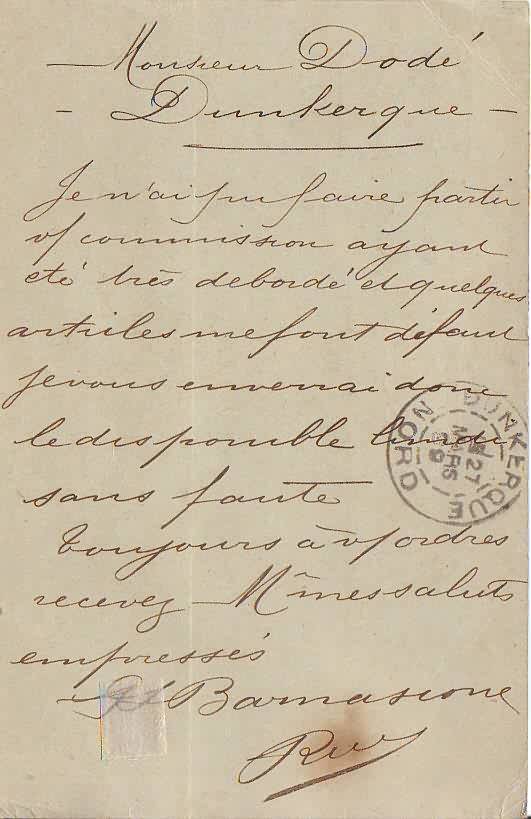 Monsieur Dodé
- Dunkerque -
Je n'ai pu faire partir
v/ commission ayant
été très debordé et quelques
articles me font défaut
je vous enverrai donc
le disponible lundi
sans faute
Toujours à v/ ordres
recevez Mr mes saluts
empressés
DUNKERQUE
27
MARS
NORD